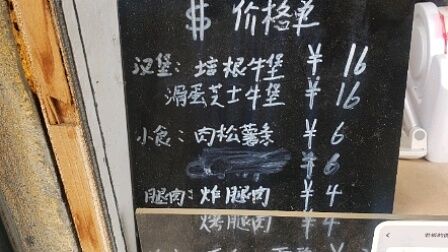 $ 价格单
汉堡: 培根牛堡 ¥ 16
滑蛋芝士牛堡 ¥ 16
小食: 肉松薯条 ¥ 6
¥ 6
腿肉: 炸腿肉 ¥ 4
烤腿肉 ¥ 4